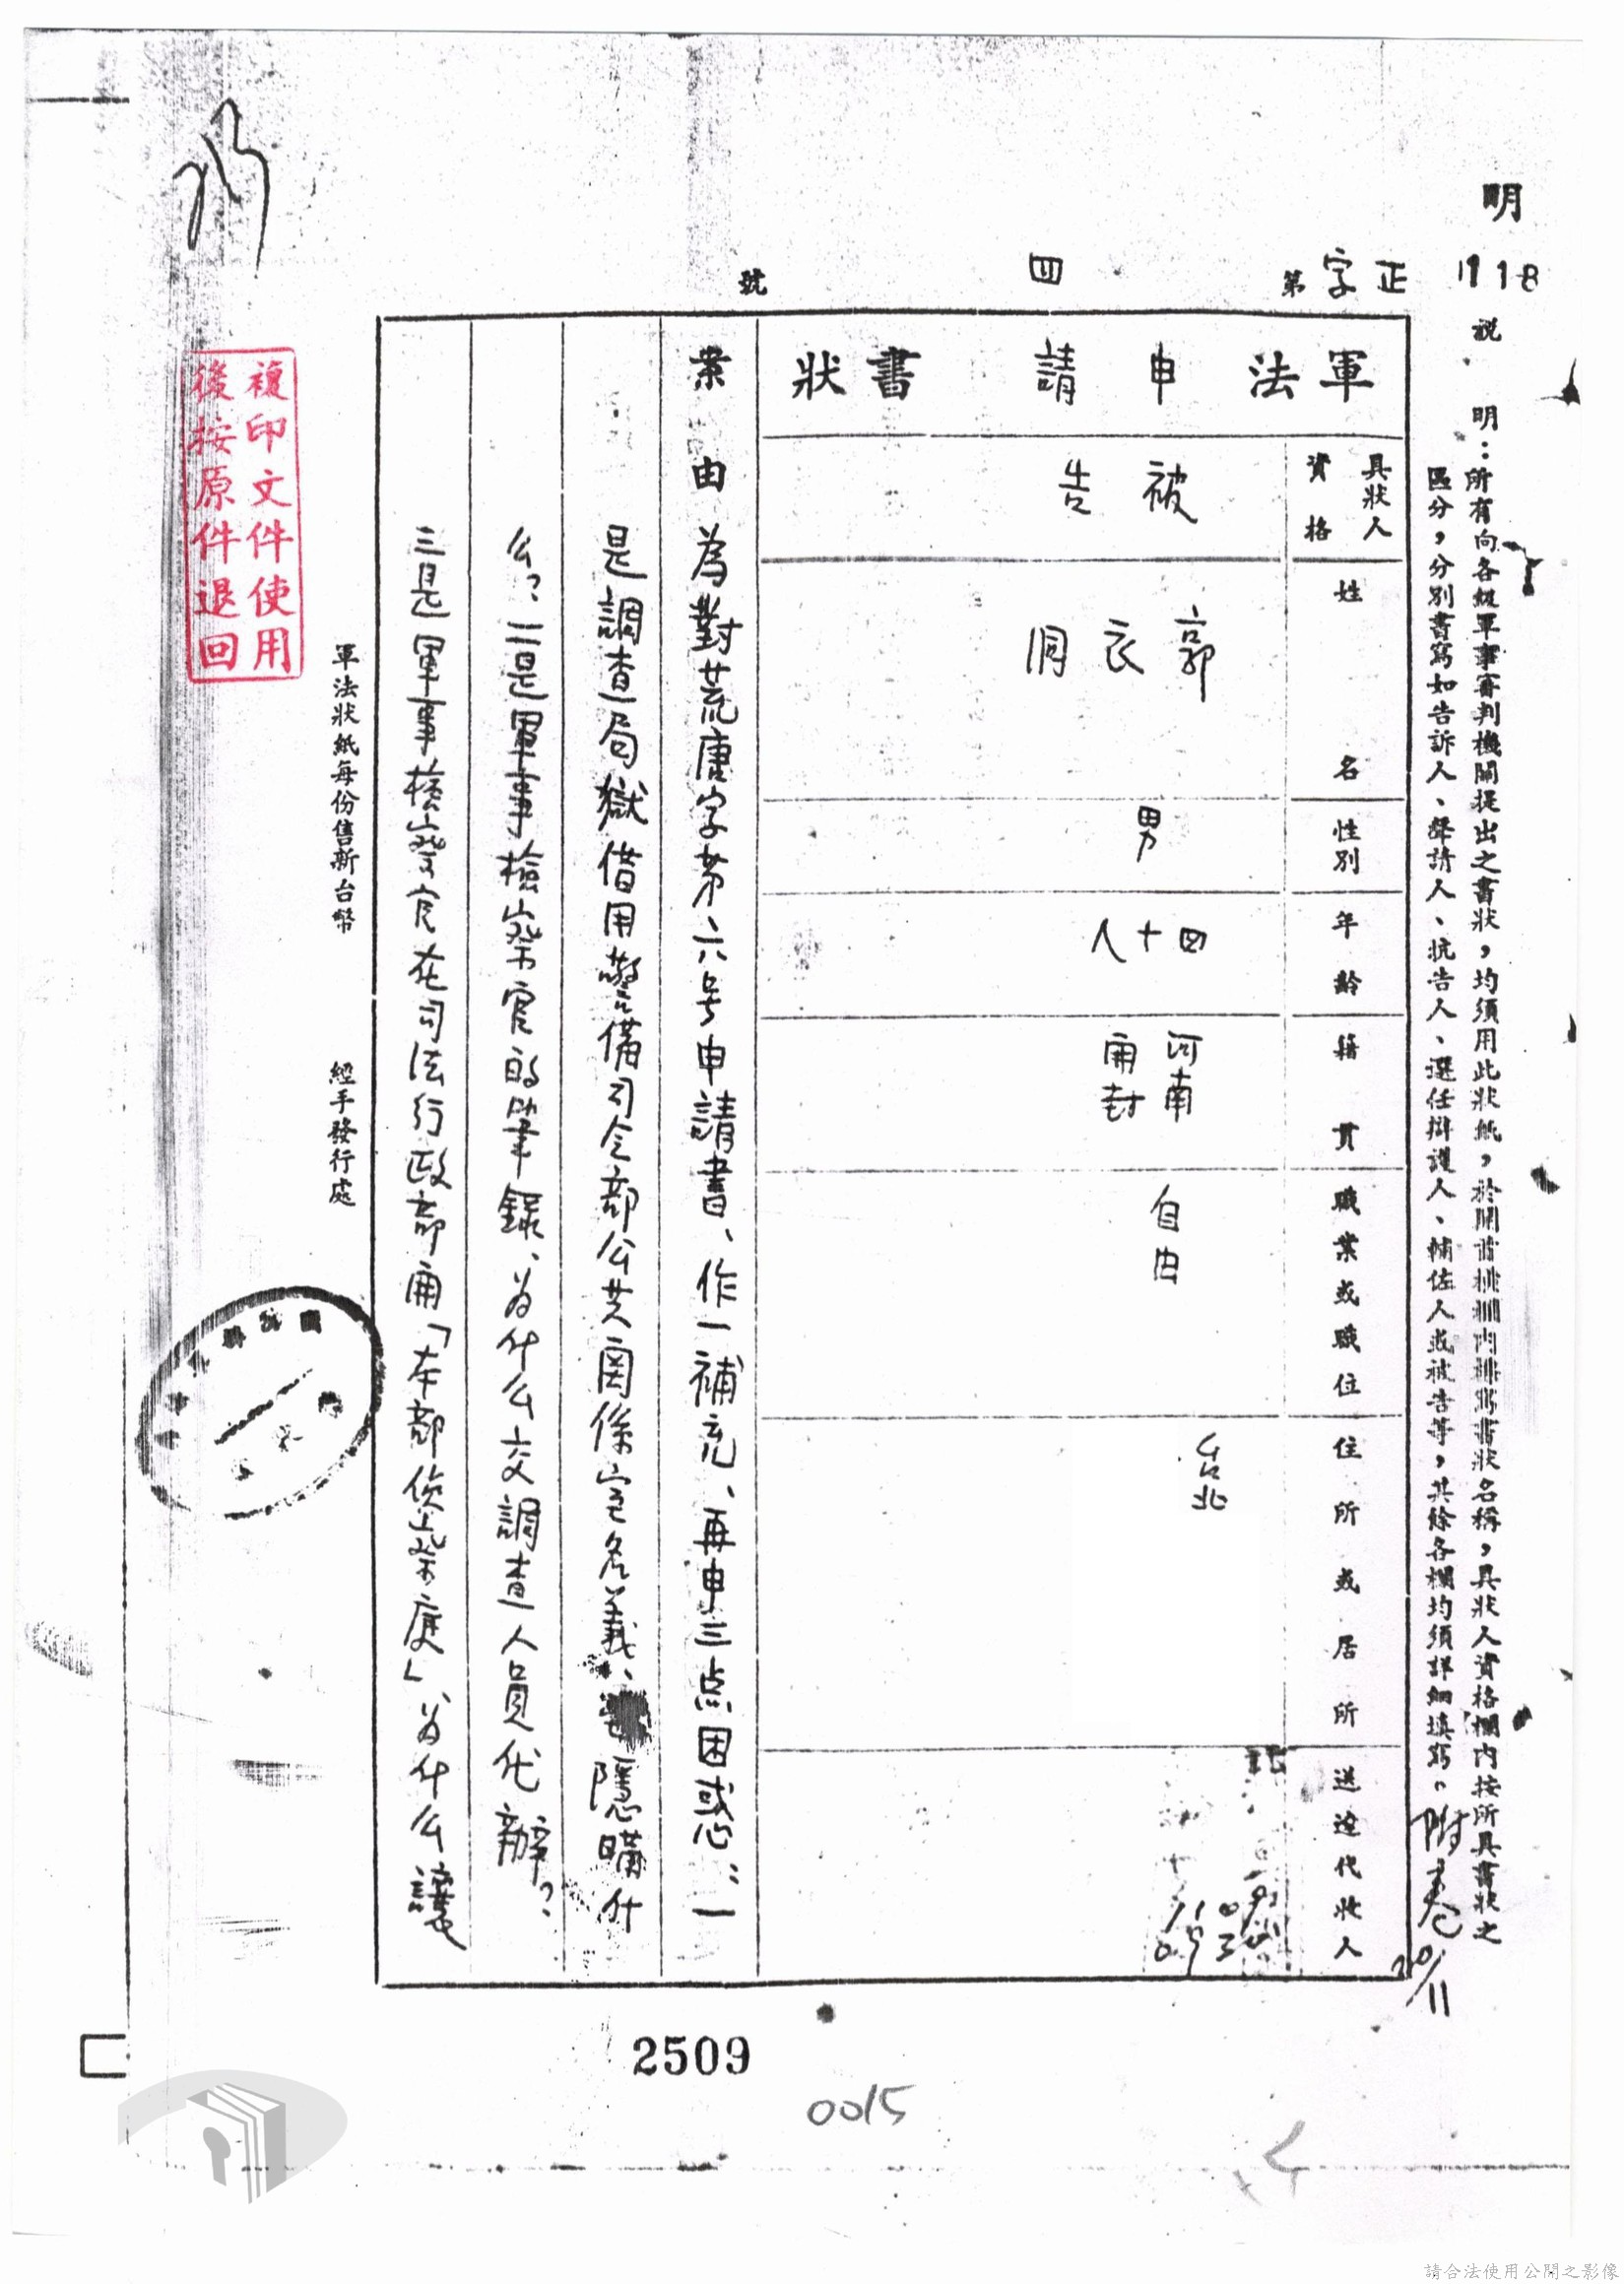 明
118
正字第四號
說明:所有向各級軍事審判機關提出之書狀,均須用此狀紙,於開首橫欄內填寫書狀名稱,具狀人資格欄內按所具書狀之
區分,分別書寫如告訴人、聲請人、抗告人、選任辯護人、輔佐人或被告等,其餘各欄均須詳細填寫。
附卷
20/11
軍法申請書狀
具狀人資格
被告
姓名
郭衣洞
性別
男
年齡
四十八
籍貫
河南開封
職業或職位
自由
住所或居所
台北
送達代收人
案由
為對荒唐字第六号申請書、作一補充、再申三点困惑:一
是調查局獄借用警備司令部公共関係室名義、隱瞞什
么?二是軍事檢察官的筆錄、为什么交調查人員代辦?
三是軍事檢察官在司法行政部開「本部偵察庭」为什么讓
軍法狀紙每份售新台幣
經手發行處
複印文件使用
後按原件退回
2509
0015
請合法使用公開之影像